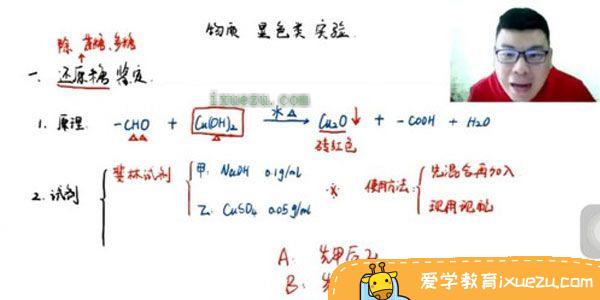 物质 显色类实验
除 蔗糖、多糖
一、还原糖鉴定
ixuezu.com
1. 原理 -CHO + Cu(OH)₂ 水△ Cu₂O↓ + -COOH + H₂O
砖红色
2. 试剂 斐林试剂 甲: NaOH 0.1g/ml 使用方法: 先混合再加入
乙: CuSO₄ 0.05g/ml 现用现配
A: 先甲后乙
B: 先
爱学教育ixuezu.com